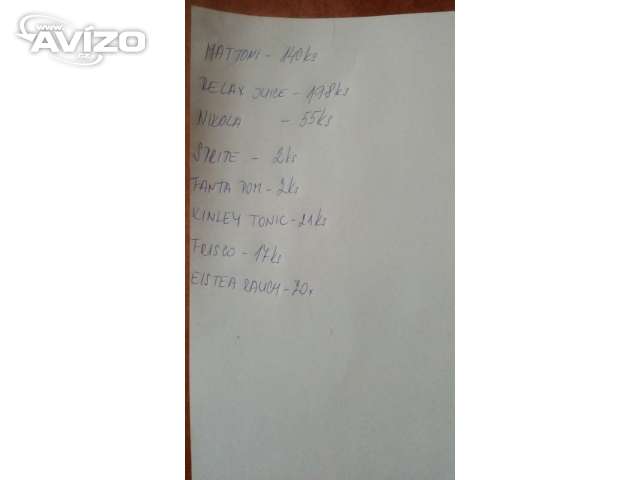 www.
AVÍZO
.cz
MATTONI - 140ks
RELAX JUICE - 178ks
NIKOLA - 55ks
SPRITE - 2ks
FANTA POM - 2ks
KINLEY TONIC - 21ks
FRISCO - 17ks
EISTEA RAUCH - 70x